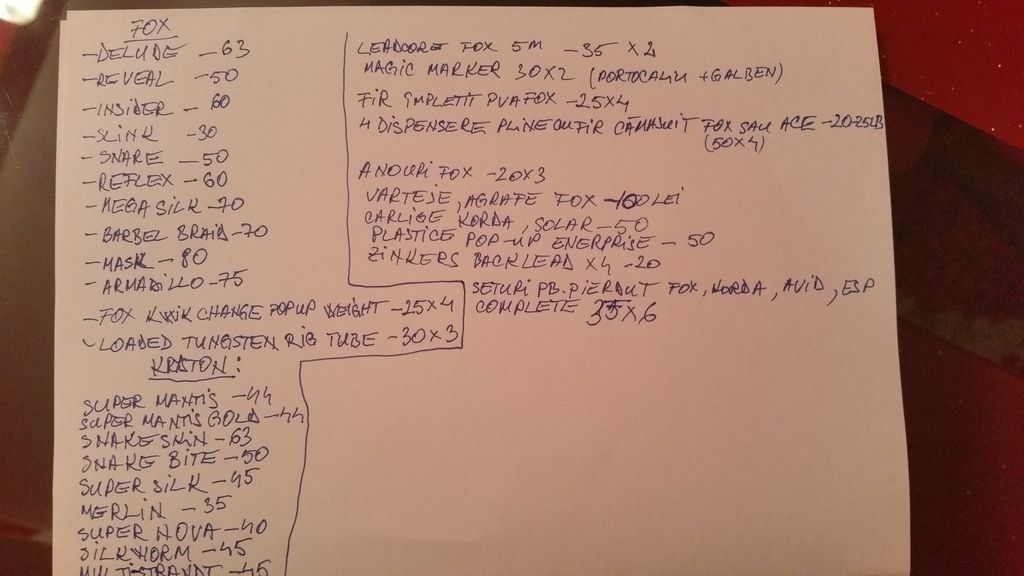 FOX
- DELUDE - 63
- REVEAL - 50
- INSIDER - 60
- SLINK - 30
- SNARE - 50
- REFLEX - 60
- MEGA SILK - 70
- BARBEL BRAID - 70
- MASK - 80
- ARMADILLO - 75
- FOX KWIK CHANGE POP UP WEIGHT - 25 X 4
- LOADED TUNGSTEN RIG TUBE - 30 X 3
KRATON:
SUPER MANTIS - 44
SUPER MANTIS GOLD - 44
SNAKE SKIN - 63
SNAKE BITE - 50
SUPER SILK - 45
MERLIN - 35
SUPER NOVA - 40
SILKWORM - 45
MULTISTRANDT - 45
LEADCORE FOX 5M - 35 X 2
MAGIC MARKER 30X2 (PORTOCALIU + GALBEN)
FIR IMPLETIT PVA FOX - 25X4
4 DISPENSERE PLINE CU FIR CĂMASUIT FOX SAU ACE - 20-25LB
(50X4)
ANOURI FOX - 20X3
VARTEJE, AGRAFE FOX - 100 LEI
CARLIGE KORDA, SOLAR - 50
PLASTICE POP-UP ENERPRISE - 50
ZINKERS BACKLEAD X4 - 20
SETURI PB. PIERDUT FOX, KORDA, AVID, ESP
COMPLETE 35X6